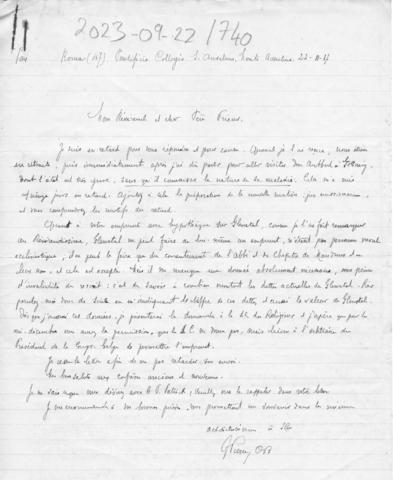 2023-09-22/740
Roma (147). Pontificio Collegio S. Anselmo, Monte Aventino, 22-11-
Mon Révérend et cher Père Prieur,
Je suis en retard pour vous répondre et pour cause. Quand je l'ai reçue, nous étions
en retraite, puis immédiatement après j'ai dû partir pour aller visiter Dom
dont l'état est très grave, sans qu'il connaisse la nature de sa maladie. Cela m'a mis
quinze jours en retard. Ajoutez à cela la préparation de la nouvelle matière
et vous comprendrez les motifs du retard.
Quant à votre emprunt avec hypothèque sur Glenstal, comme je l'ai fait remarquer
au Révérendissime, Glenstal ne peut faire de lui-même un emprunt, n'étant pas personne morale
ecclésiastique, il ne peut le faire que du consentement de l'Abbé et du Chapitre de Maredsous et en
leur nom, et cela est accepté. Mais il me manque une donnée absolument nécessaire, sous peine
d'invalidité du rescrit: c'est de savoir à combien montent les dettes actuelles de Glenstal.
moi tout de suite en m'indiquant le chiffre de ces dettes et aussi la valeur de Glenstal.
Dès que j'aurai ces données, je présenterai la demande à la des Religieux et j'espère que par la
mi-décembre vous aurez la permission, que la S.C. ne donne pas, mais laisse à l'arbitraire du
Président de la Congr. belge de permettre l'emprunt.
Je cesse la lettre afin de ne pas retarder son envoi.
confrères anciens et nouveaux.
Je ne sais vous dînez avec R. P. Patrick; veuillez me rappeler à
Je me recommande à vos bonnes prières, vous promettant un souvenir dans les miennes